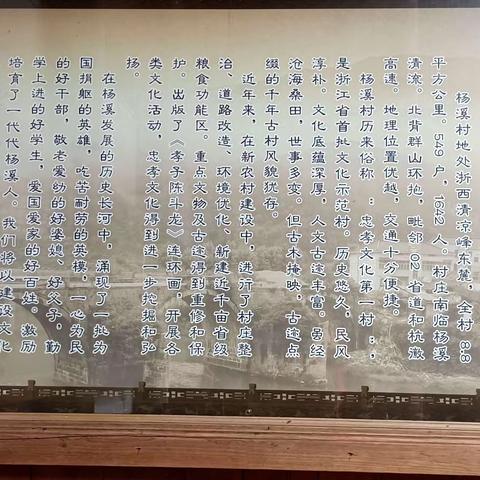 杨溪村地处浙西清凉峰东麓，全村8.8
平方公里。549户，1642人。村庄南临杨溪
清流。北背群山环抱，毗邻02省道和杭徽
高速。地理位置优越，交通十分便捷。
杨溪村历来俗称“忠孝文化第一村”，
是浙江省首批文化示范村。历史悠久，民风
淳朴。文化底蕴深厚，人文古迹丰富。虽经
沧海桑田，世事多变。但古木掩映，古迹点
缀的千年古村风貌犹存。
近年来，在新农村建设中，进行了村庄整
治、道路改造、环境优化、新建近千亩省级
粮食功能区。重点文物及古迹得到重修和保
护。出版了《孝子陈斗龙》连环画，开展各
类文化活动，忠孝文化得到进一步挖掘和弘
扬。
在杨溪发展的历史长河中，涌现了一批为
国捐躯的英雄，吃苦耐劳的英模，一心为民
的好干部，敬老爱幼的好婆媳、好父子，勤
学上进的好学生，爱国爱家的好百姓。激励
培育了一代代杨溪人。我们将以建设文化